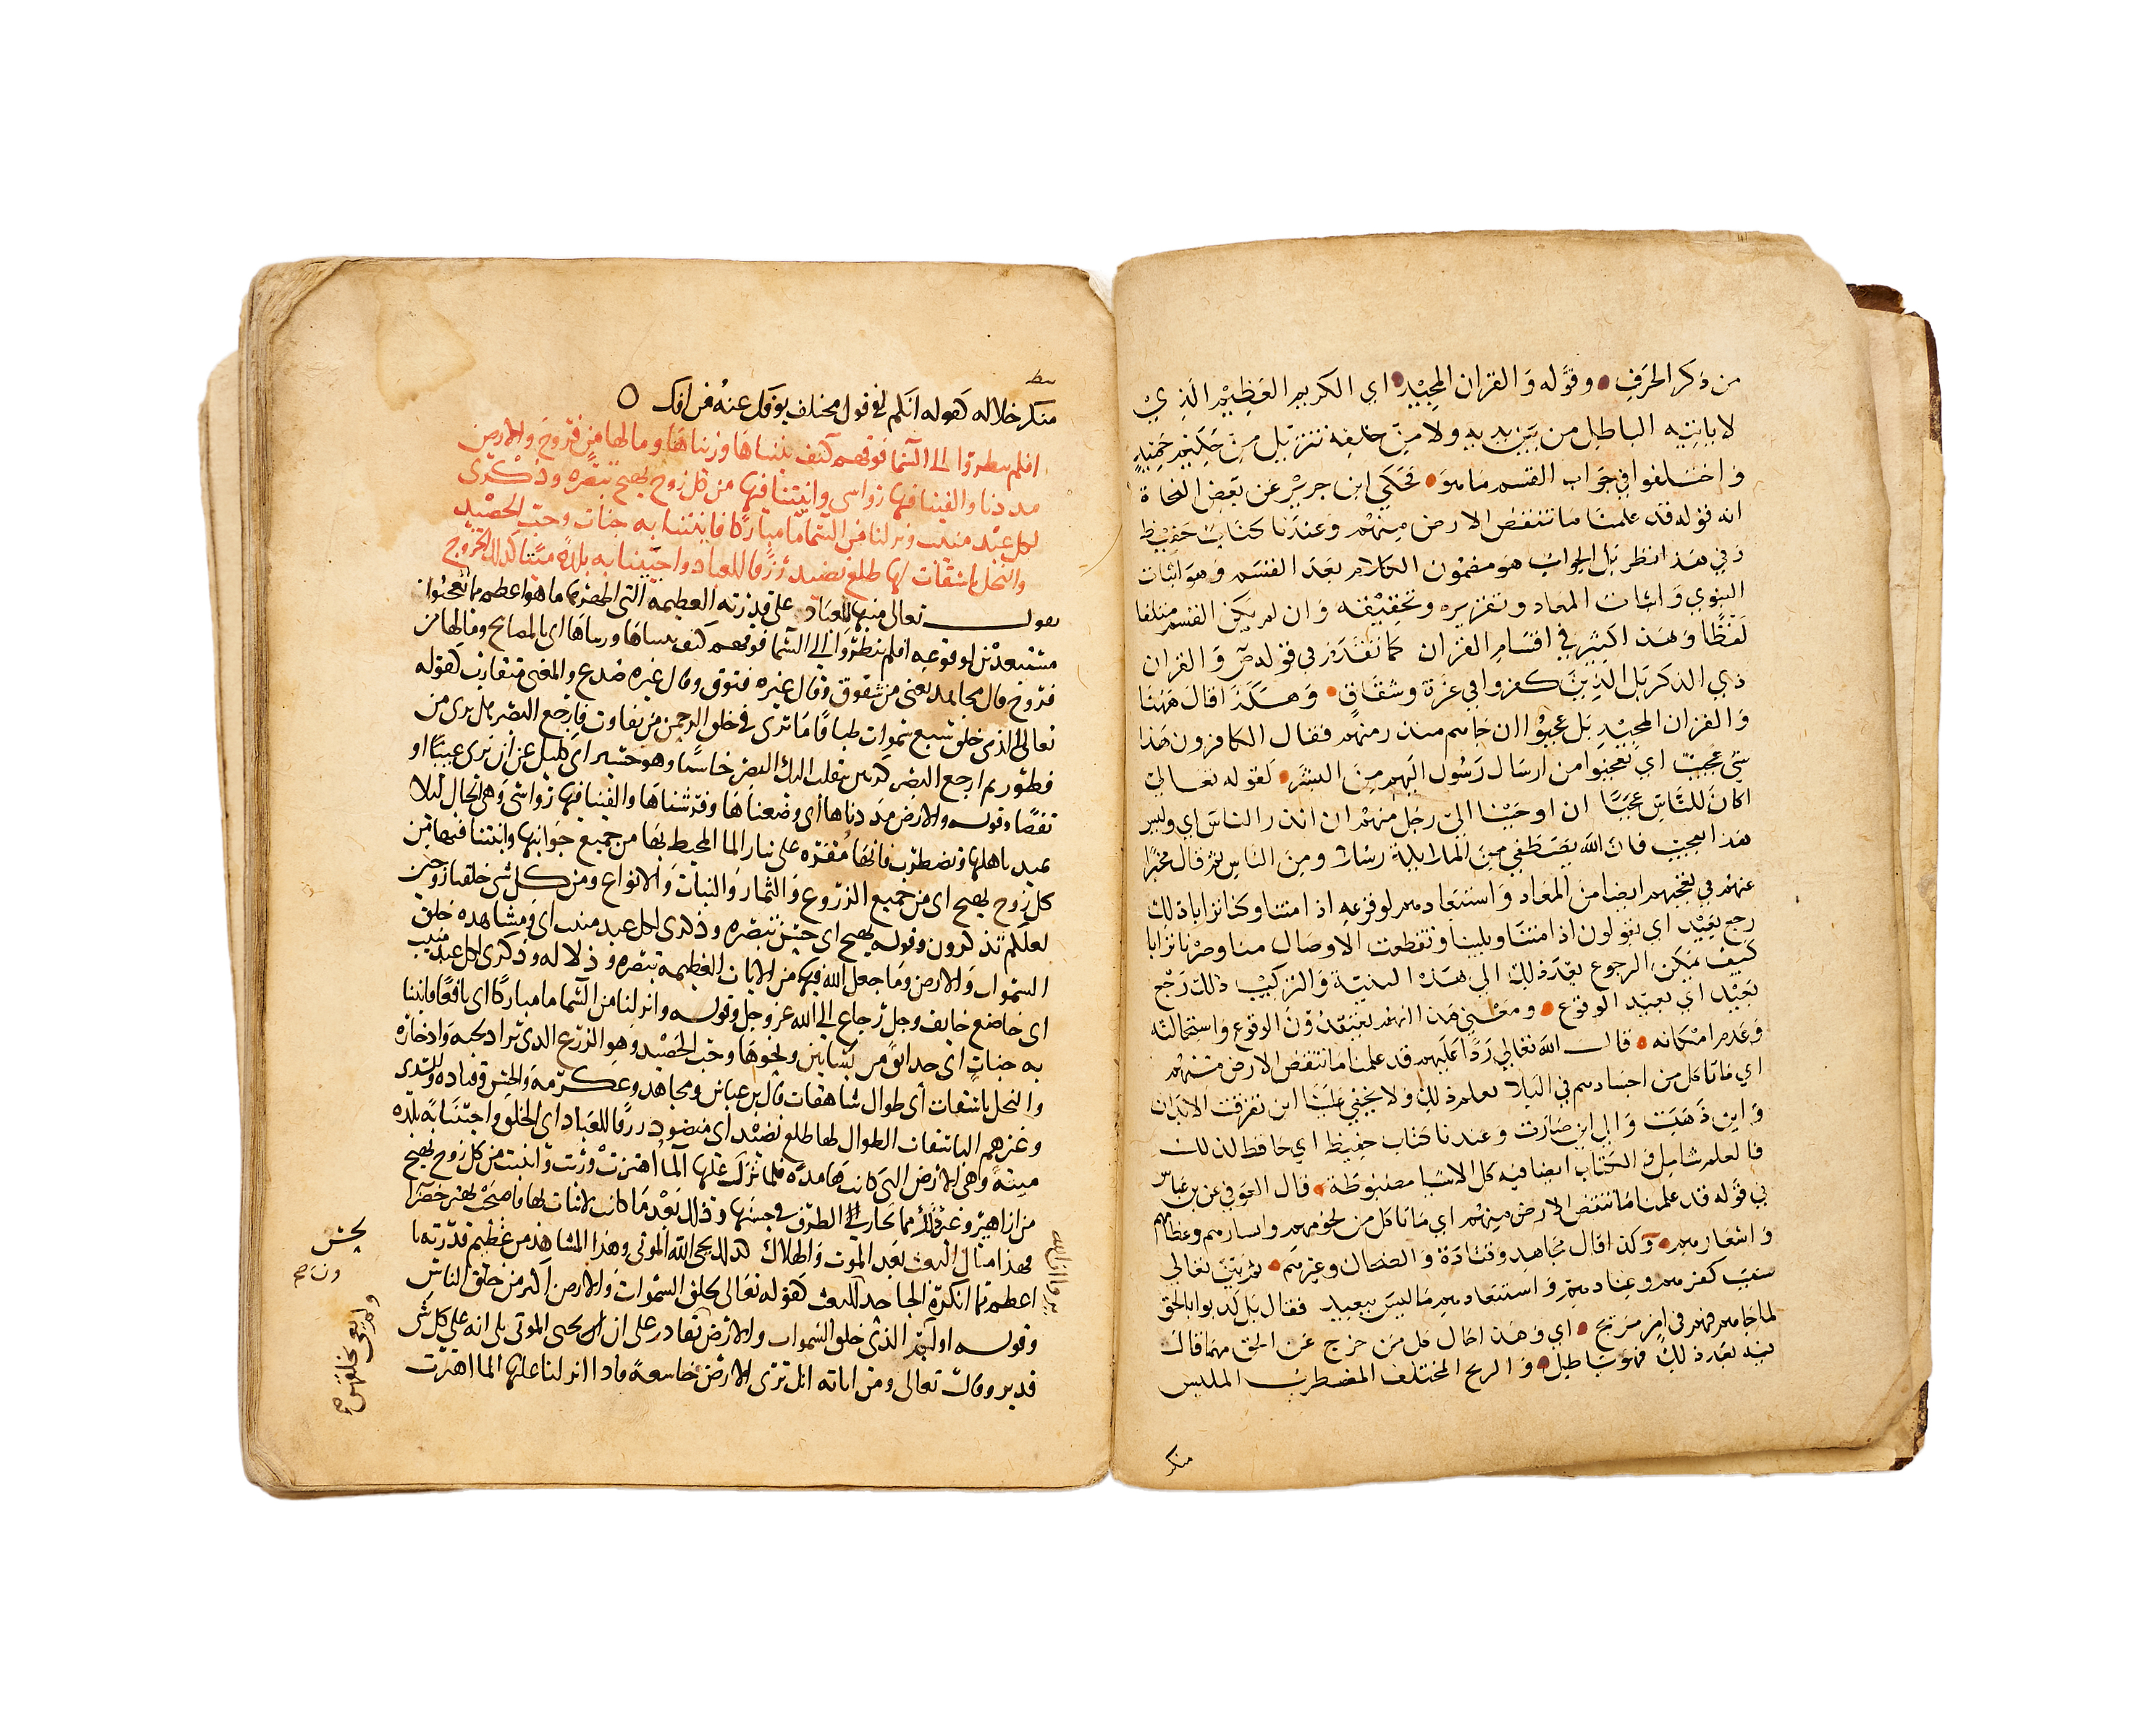 من ذكر الحرف وقوله والقران المجيد اي الكريم العظيم الذي
لا ياتيه الباطل من بين يديه ولا من خلفه تنزيل من حكيم حميد
واختلفوا في جواب القسم ما هو فحكي ابن جرير عن بعض النحاة
انه قوله قد علمنا ما تنقص الارض منهم وعندنا كتاب حفيظ
وفي هذا نظر بل الجواب هو مضمون الكلام بعد القسم وهو اثبات
النبوي واثبات المعاد وتقريره وتحقيقه وان لم يكن القسم متلقا
لفظا وهذا كثير في اقسام القران كما تقدم في قوله ص والقران
ذي الذكر بل الذين كفروا في عزة وشقاق وهكذا قال ههنا
والقران المجيد بل عجبوا ان جاهم منذر منهم فقال الكافرون هذا
شي عجيب اي تعجبوا من ارسال رسول اليهم من البشر لقوله تعالي
اكان للناس عجبا ان اوحينا الي رجل منهم ان انذر الناس اي وليس
هذا بعجيب فان الله يصطفي من الملايكة رسلا ومن الناس ثم قال مخبرا
عنهم في تعجبهم ايضا من المعاد واستبعادهم لوقوعه اذا متنا وكنا ترابا ذلك
رجع بعيد اي يقولون اذا متنا وبلينا وتقطعت الاوصال منا وصرنا ترابا
كيف يمكن الرجوع بعد ذلك الي هذه البنية والتركيب ذلك رجع
بعيد اي بعيد الوقوع ومعني هذا انهم يعتقدون الوقوع واستحالته
وعدم امكانه قال الله تعالي ردا عليهم قد علمنا ما تنقص الارض منهم
اي ما تاكل من اجسادهم في البلا نعلم ذلك ولا يخفي علينا اين تفرقت الابدان
واين ذهبت والي اين صارت وعندنا كتاب حفيظ اي حافظ لذلك
فالعلم شامل والكتاب ايضا فيه كل الاشيا مضبوطة قال العوفي عن بن عباس
في قوله قد علمنا ما تنقص الارض منهم اي ما تاكل من لحومهم وابشارهم وعظامهم
واشعارهم وكذا قال مجاهد وقتادة والضحاك وغيرهم ثم بين تعالي
سبب كفرهم وعنادهم واستبعادهم ما ليس ببعيد فقال بل كذبوا بالحق
لما جاهم فهم في امر مريج اي وهذا حال كل من خرج عن الحق مهما قال
بعد ذلك فهو باطل والمريج المختلف المضطرب الملتبس
منكر
منكر خلاله كقوله انكم لفي قول مختلف يوفك عنه من افك
افلم ينظروا الى السما فوقهم كيف بنيناها وزيناها وما لها من فروج والارض
مددناها والقينا فيها رواسي وانبتنا فيها من كل زوج بهيج تبصره وذكرى
لكل عبد منيب ونزلنا من السما ما مباركا فانبتنا به جنات وحب الحصيد
والنخل باسقات لها طلع نضيد رزقا للعباد واحيينا به بلدة ميتا كذلك الخروج
يقول تعالى منبها للعباد على قدرته العظيمه التي اظهر بها ما هو اعظم مما تعجبوا
مستبعدين لوقوعه افلم ينظروا الى السما فوقهم كيف بنيناها وزيناها اي بالمصابيح وما لها من
فروج قال مجاهد يعني من شقوق وقال غيره فتوق وقال غيره صدع والمعنى متقارب كقوله
تعالى الذي خلق سبع سموات طباقا ما ترى في خلق الرحمن من تفاوت فارجع البصر هل ترى من
فطور ثم ارجع البصر كرتين ينقلب اليك البصر خاسئا وهو حسير اي كليل عن ان يرى عيبا او
نقصا وقوله والارض مددناها اي وضعناها وفرشناها والقينا فيها رواسي وهي الجبال ليلا
تميد باهلها وتضطرب فانها مقره على تيار الما المحيط بها من جميع جوانبها وانبتنا فيها من
كل زوج بهيج اي من جميع الزروع والثمار والنبات والانواع ومن كل شي خلقنا زوجين
لعلكم تذكرون وقوله بهيج اي حسن تبصره وذكرى لكل عبد منيب اي ومشاهده خلق
السموات والارض وما جعل الله فيها من الايات العظيمه تبصره ودلاله وذكرى لكل عبد منيب
اي خاضع خايف وجل رجاع الى الله عز وجل وقوله وانزلنا من السما ما مباركا اي نافعا فانبتنا
به جنات اي حدائق من بساتين ونحوها وحب الحصيد وهو الزرع الذي يراد لحبه وادخاره
والنخل باسقات اي طوال شاهقات قال بن عباس ومجاهد وعكرمه والحسن وقتاده والسدى
وغيرهم الباسقات الطوال لها طلع نضيد اي منضود رزقا للعباد اي الخلق واحيينا به بلده
ميتة وهي الارض التي كانت هامده فلما نزل عليها الما اهتزت وربت وانبتت من كل زوج بهيج
من ازاهير وغير ذلك مما يحار الطرف في حسنها وذلك بعد ما كانت لا نبات لها فاصبحت تهتز خضرا
فهذا مثال البعث بعد الموت والهلاك كذلك يحيى الله الموتى وهذا المشاهد من عظيم قدرته ما
اعظم مما انكره الجاحدون للبعث كقوله تعالى لخلق السموات والارض اكبر من خلق الناس
وقوله اوليس الذي خلق السموات والارض بقادر على ان يحيى الموتى بلى انه على كل شي
قدير وقال تعالى ومن اياته انك ترى الارض خاشعة فاذا انزلنا عليها الما اهتزت
ولم يعي بخلقهن صح